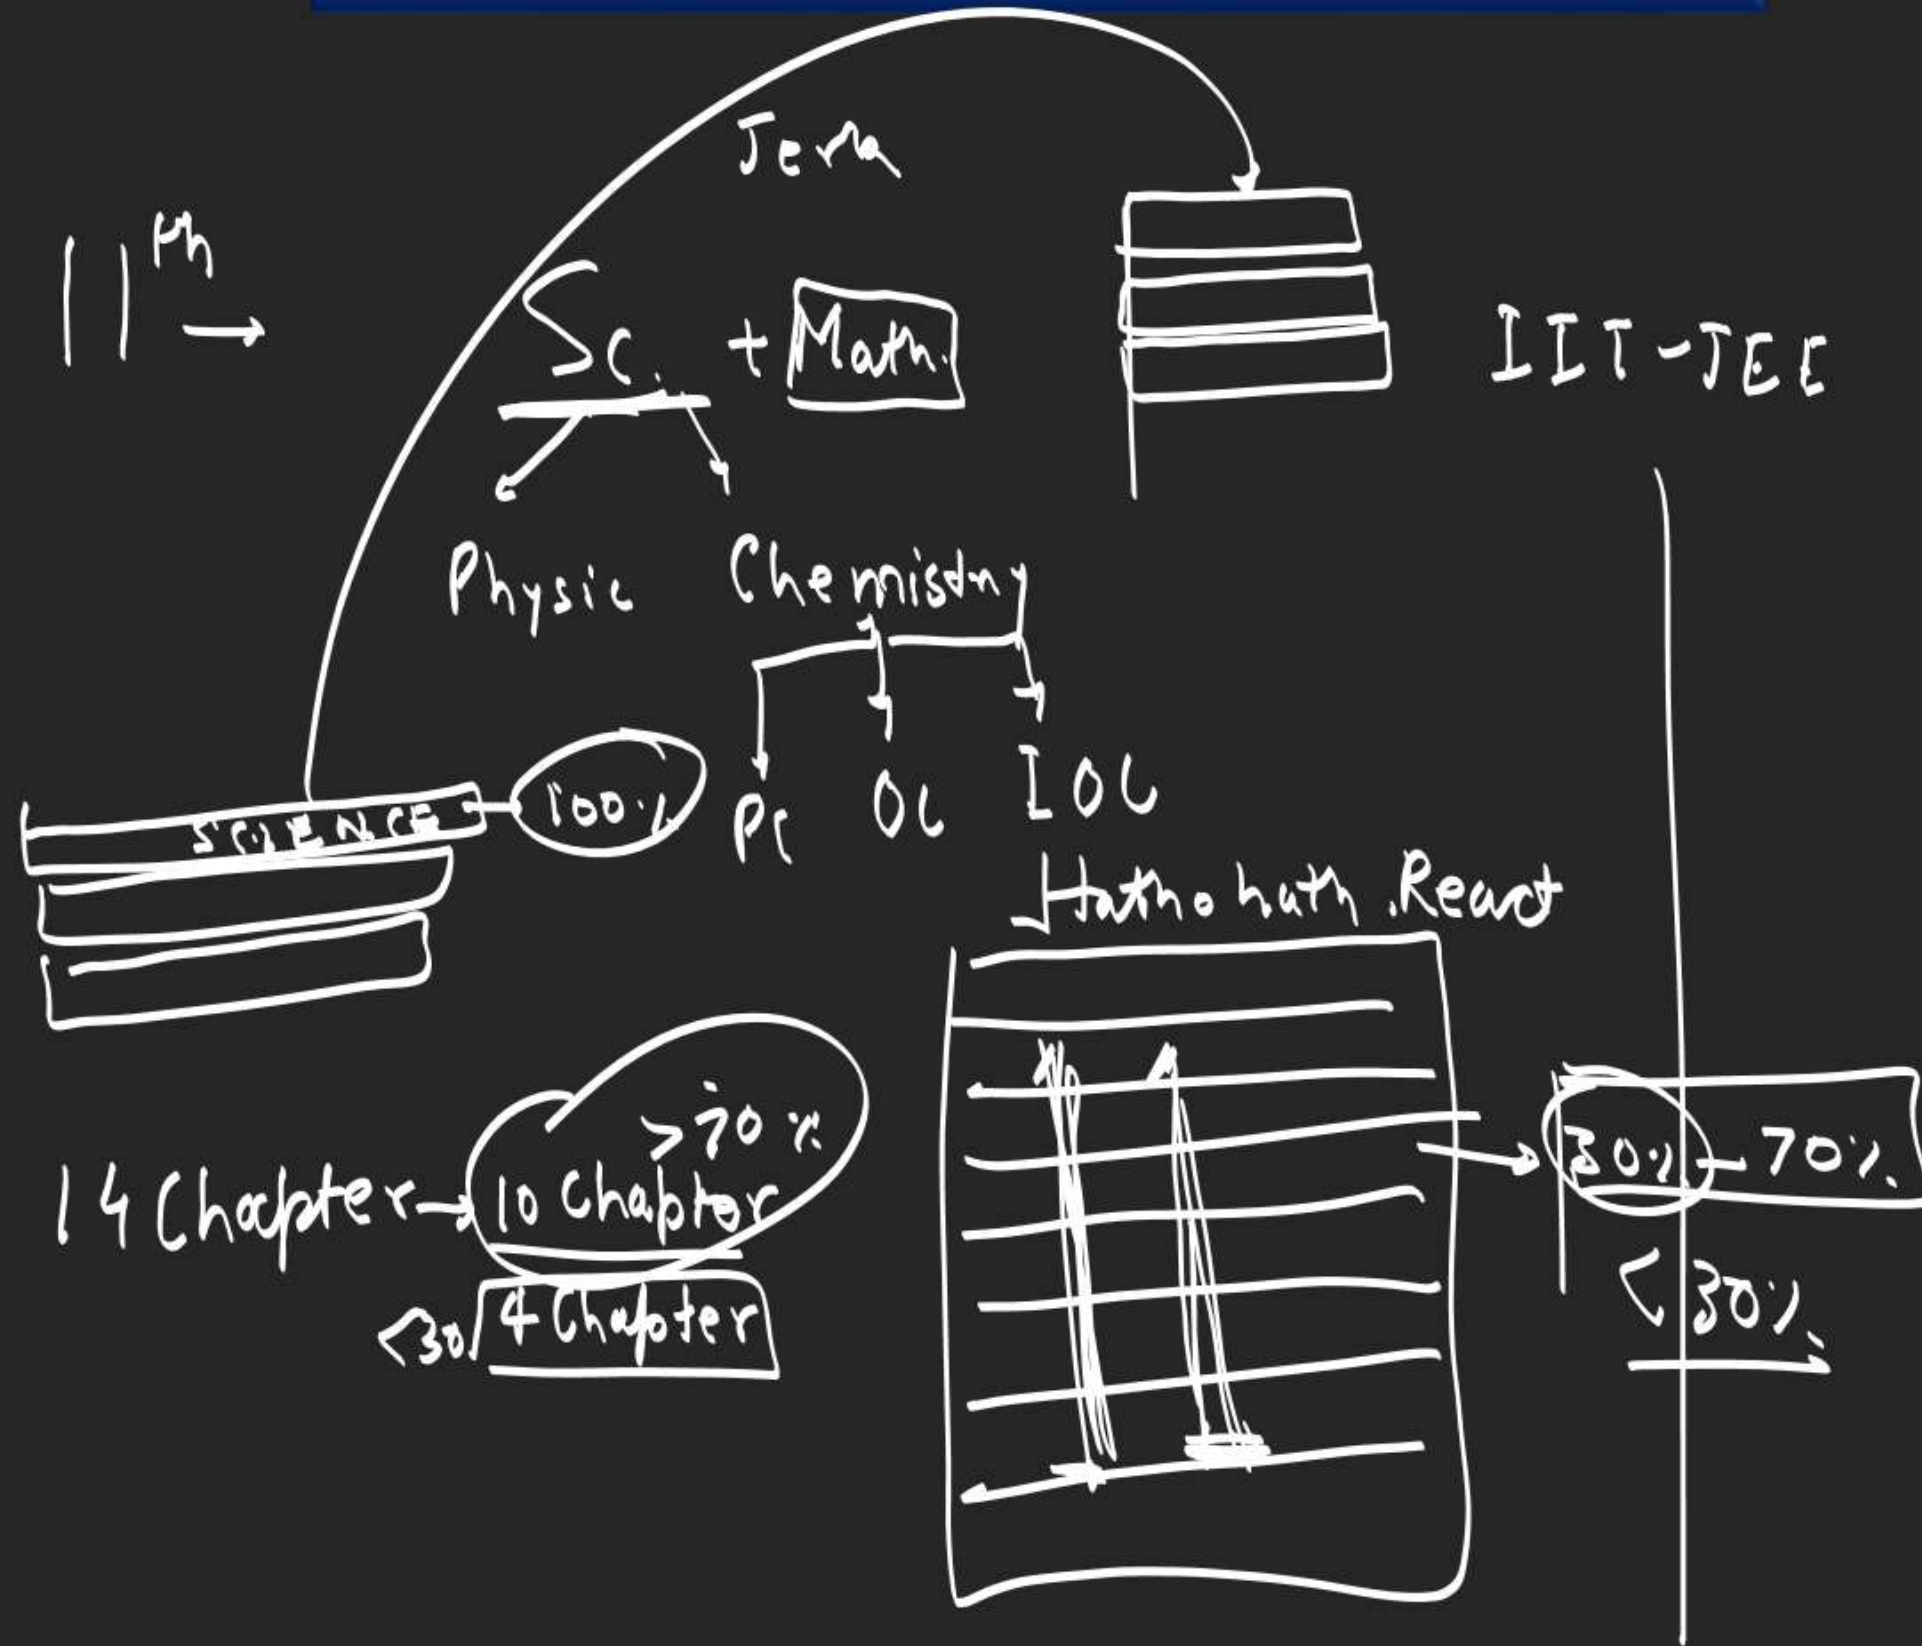 11th →
Sc. + Math.
IIT-JEE
Physic Chemistry
PC OC IOC
SCIENCE 100%
Hathohath React
14 Chapter → 10 Chapter >70%
<30% 4 Chapter
30% - 70%.
<30%.